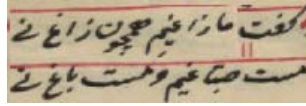 گفت ما زاغیم همچون زاغ نے
مست صباغیم و مست باغ نے